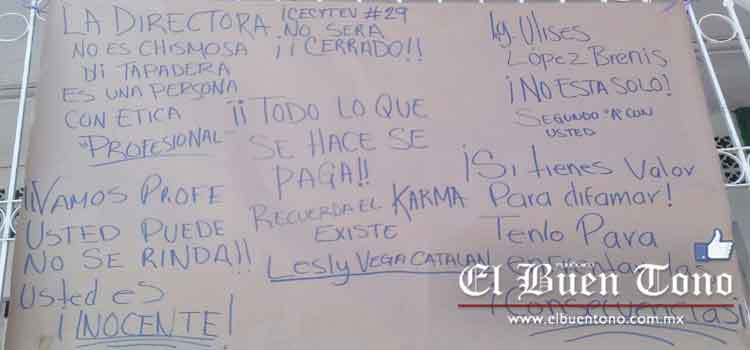 LA DIRECTORA
NO ES CHISMOSA
NI TAPADERA
ES UNA PERSONA
CON ETICA
"PROFESIONAL"
¡¡VAMOS PROFE
USTED PUEDE
NO SE RINDA!!
Usted es
¡INOCENTE!
CECYTEV #29
NO SERA
¡¡CERRADO!!
¡¡TODO LO QUE
SE HACE SE
PAGA!!
RECUERDA EL KARMA
EXISTE
Lesly VEGA CATALAN
Ig. Ulises
López Brenis
¡NO ESTA SOLO!
SEGUNDO "A" CON
USTED
¡Si tienes Valor
Para difamar!
Tenlo Para
¡Consecuencias!
El Buen Tono
www.elbuentono.com.mx